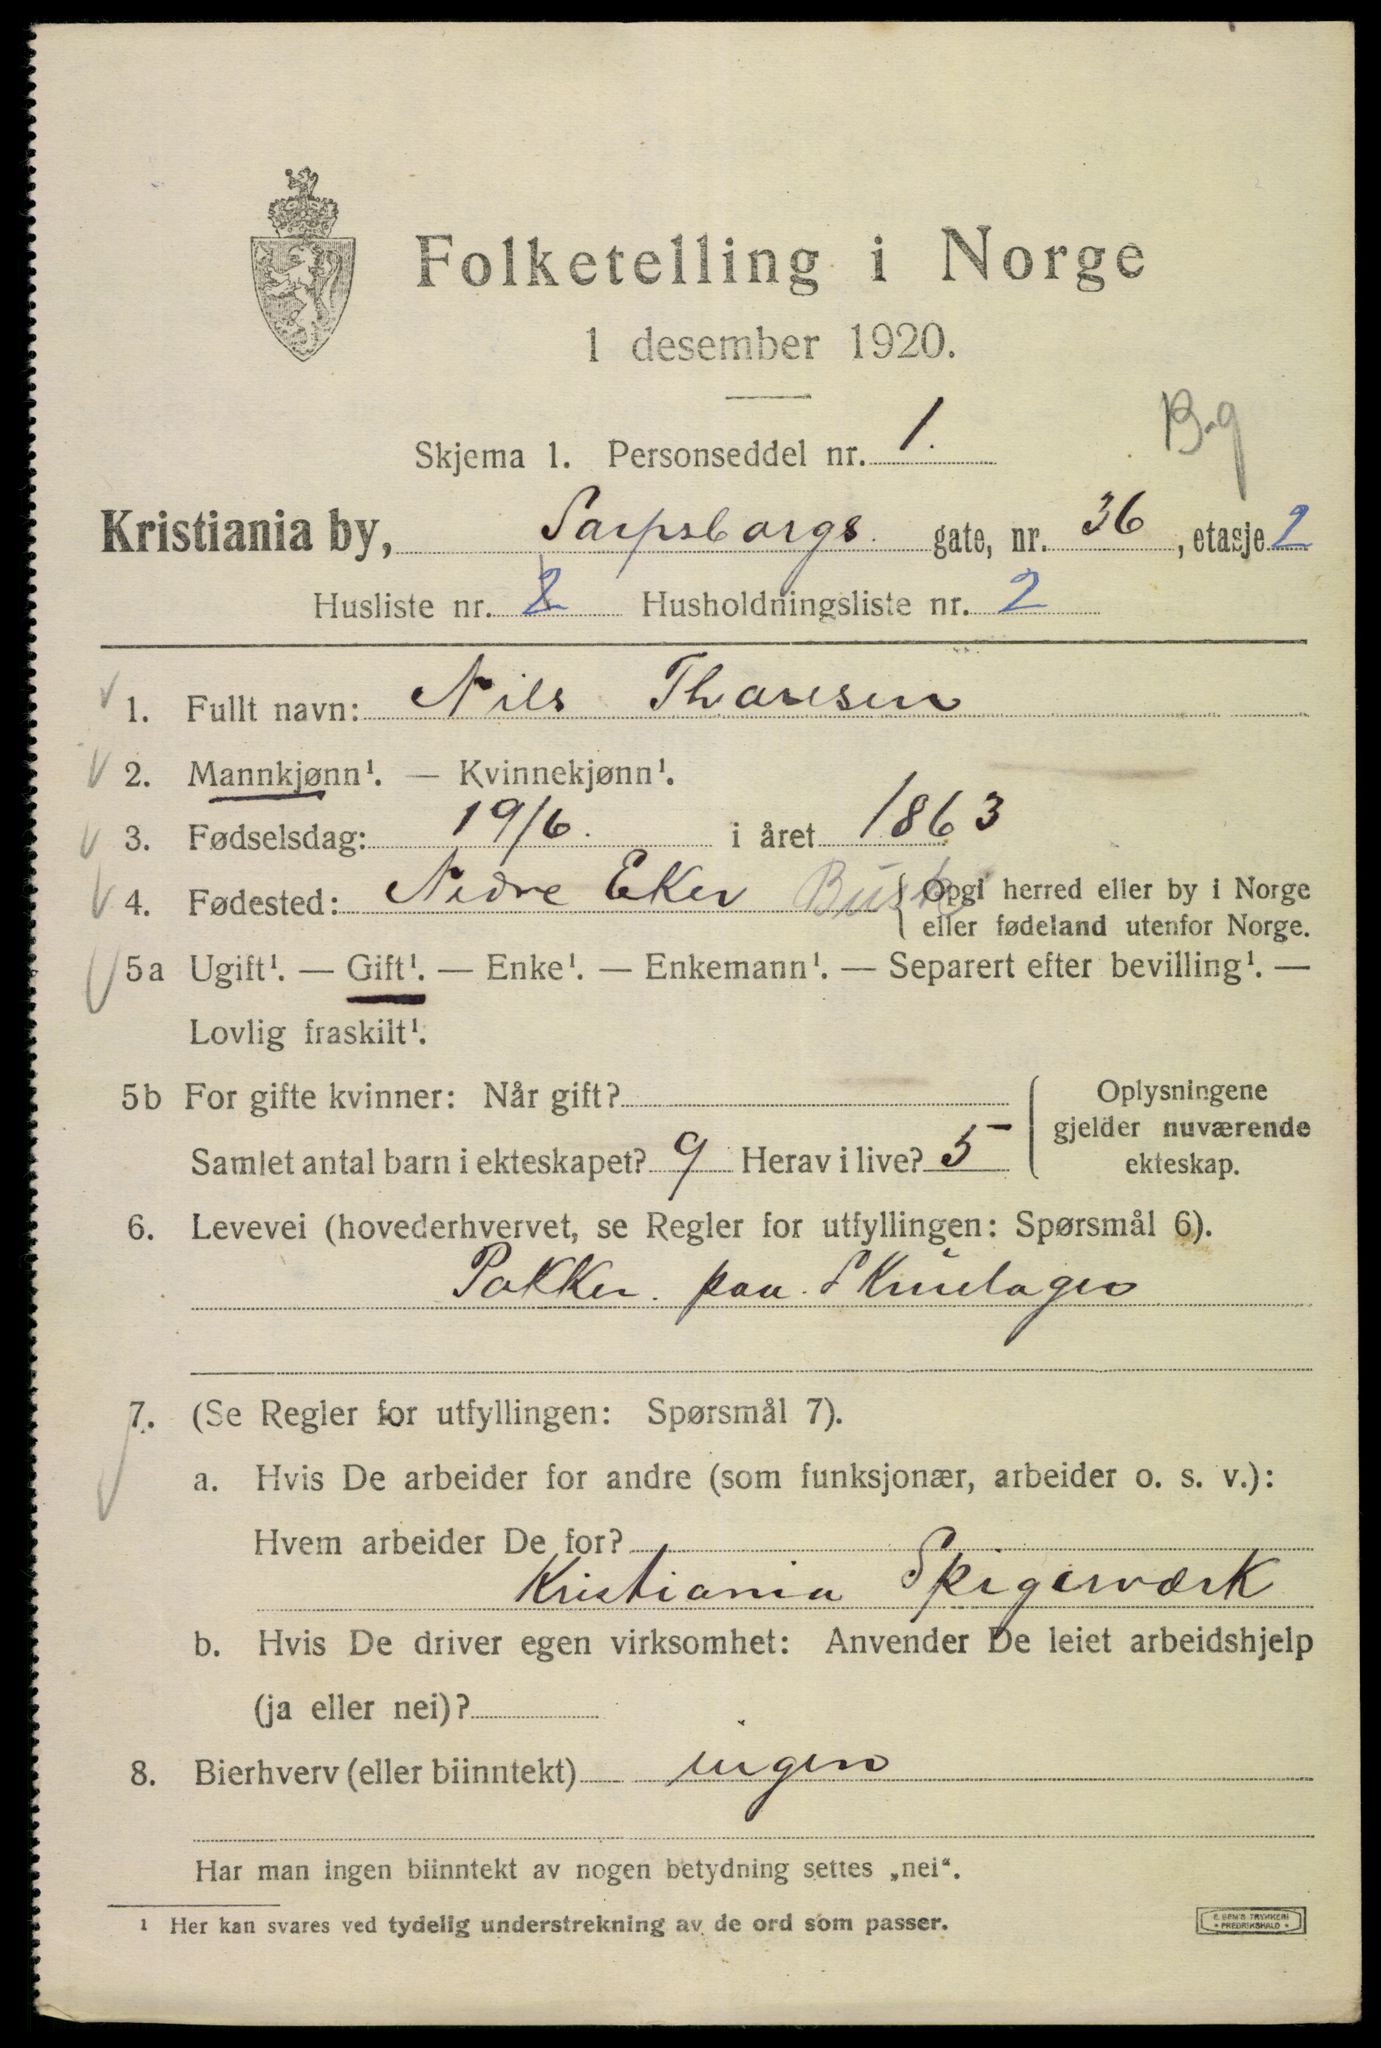 Folketelling i Norge
1 desember 1920.
Skjema 1. Personseddel nr. 1.
B.g
Kristiania by, Sarpsborgs gate, nr. 36, etasje 2
Husliste nr. 2 Husholdningsliste nr. 2
1. Fullt navn: Nils Thoresen
2. Mannkjønn¹. — Kvinnekjønn¹.
3. Fødselsdag: 19/6. i året 1863
4. Fødested: Nedre Eker Busk { Opgi herred eller by i Norge
eller fødeland utenfor Norge.
5a Ugift¹. — Gift¹. — Enke¹. — Enkemann¹. — Separert efter bevilling¹. —
Lovlig fraskilt¹.
5b For gifte kvinner: Når gift?
Samlet antal barn i ekteskapet? 9 Herav i live? 5
Oplysningene
gjelder nuværende
ekteskap.
6. Levevei (hovederhvervet, se Regler for utfyllingen: Spørsmål 6).
Pakker. paa. Skruelager
7. (Se Regler for utfyllingen: Spørsmål 7).
a. Hvis De arbeider for andre (som funksjonær, arbeider o. s. v.):
Hvem arbeider De for?
Kristiania Spigerværk
b. Hvis De driver egen virksomhet: Anvender De leiet arbeidshjelp
(ja eller nei)?
8. Bierhverv (eller biinntekt) ingen
Har man ingen biinntekt av nogen betydning settes „nei“.
¹ Her kan svares ved tydelig understrekning av de ord som passer.
E. SEM'S TRYKKERI
• FREDRIKSHALD •